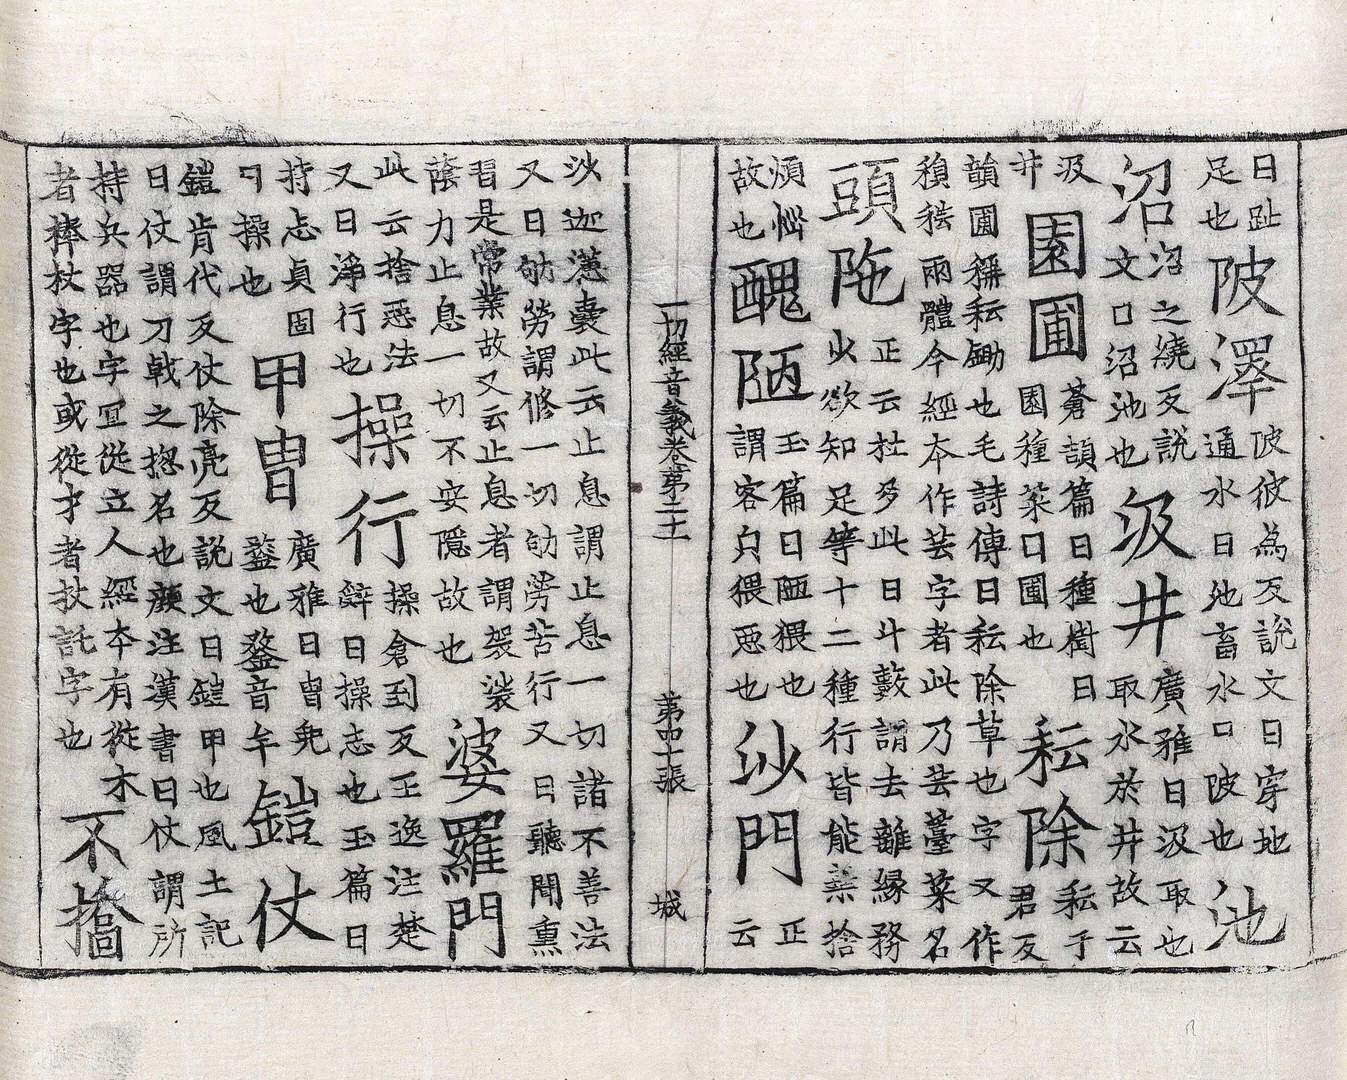 日趾足也陂澤陂彼為反說文曰穿地通水曰池畜水曰陂也池
沼沼之繞反說文曰沼池也汲井廣雅曰汲取也取水於井故云
汲井園圃蒼頡篇曰種樹曰園種菜曰圃也耘除耘于君反
韻圃稱耘鋤也毛詩傳曰耘除草也字又作兩體今經本作芸字者此乃芸薹菜名
頭陁正云杜多此曰斗藪謂去離緣務少欲知足等十二種行皆能棄捨
煩惱故也醜陋玉篇曰陋猥也謂容皃猥惡也沙門正云
一切經音義卷第二十一 第四十張 城
沙迦懣曩此云止息謂止息一切諸不善法又曰劬勞謂修一切劬勞苦行又曰聽聞熏
習是常業故又云止息者謂袈裟蔭力止息一切不安隱故也婆羅門
此云捨惡法又曰淨行也操行操倉到反王逸注楚辭曰操志也玉篇曰
持志貞固曰操也甲冑廣雅曰冑兜鍪也鍪音牟鎧仗
鎧肯代反仗除亮反說文曰鎧甲也風土記曰仗謂刀戟之揔名也顏注漢書曰仗謂所
持兵器也字宜從立人經本有從木者棒杖字也或從才者扙託字也不撟